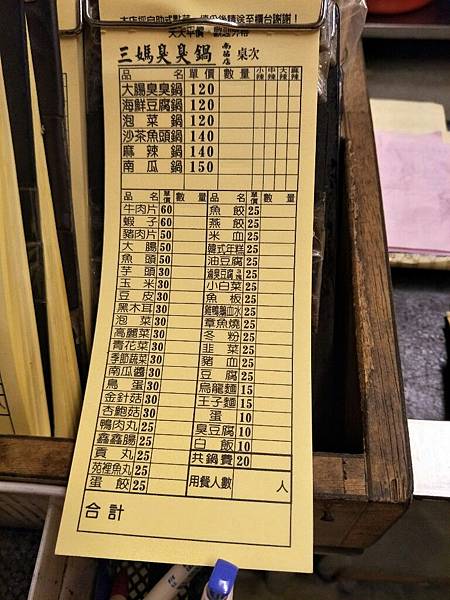 天天平價 歡迎外帶
三媽臭臭鍋 桌次
品名 單價 數量 小辣 中辣 大辣 麻辣
大腸臭臭鍋 120
海鮮豆腐鍋 120
泡菜鍋 120
沙茶魚頭鍋 140
麻辣鍋 140
南瓜鍋 150
品名 單價 數量 品名 單價 數量
牛肉片 60 魚餃 25
蝦子 60 燕餃 25
豬肉片 50 米血 25
大腸 50 韓式年糕 25
魚頭 50 油豆腐 25
芋頭 30 滷臭豆腐 25
玉米 30 小白菜 25
豆皮 30 魚板 25
黑木耳 30 25
泡菜 30 章魚燒 25
高麗菜 30 冬粉 25
青花菜 30 韭菜 25
季節蔬菜 30 豬血 25
南瓜醬 30 豆腐 25
鳥蛋 30 烏龍麵 15
金針菇 30 王子麵 15
杏鮑菇 30 蛋 10
鴨肉丸 25 臭豆腐 10
鑫鑫腸 25 白飯 10
貢丸 25 共鍋費 20
苑裡魚丸 25 用餐人數 人
蛋餃 25
合計